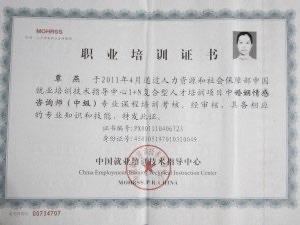 MOHRSS
职业培训证书
覃燕 于2011年4月通过人力资源和社会保障部中国
就业培训技术指导中心1+N复合型人才培训项目中婚姻情感
咨询师（中级）专业课程培训考核，经审核，具备相应
的专业知识和技能，特发此证。
证书编号:
身份证号:
中国就业培训技术指导中心
China Employment Technical Instruction Center
MOHRSS P.R.CHINA
00734707